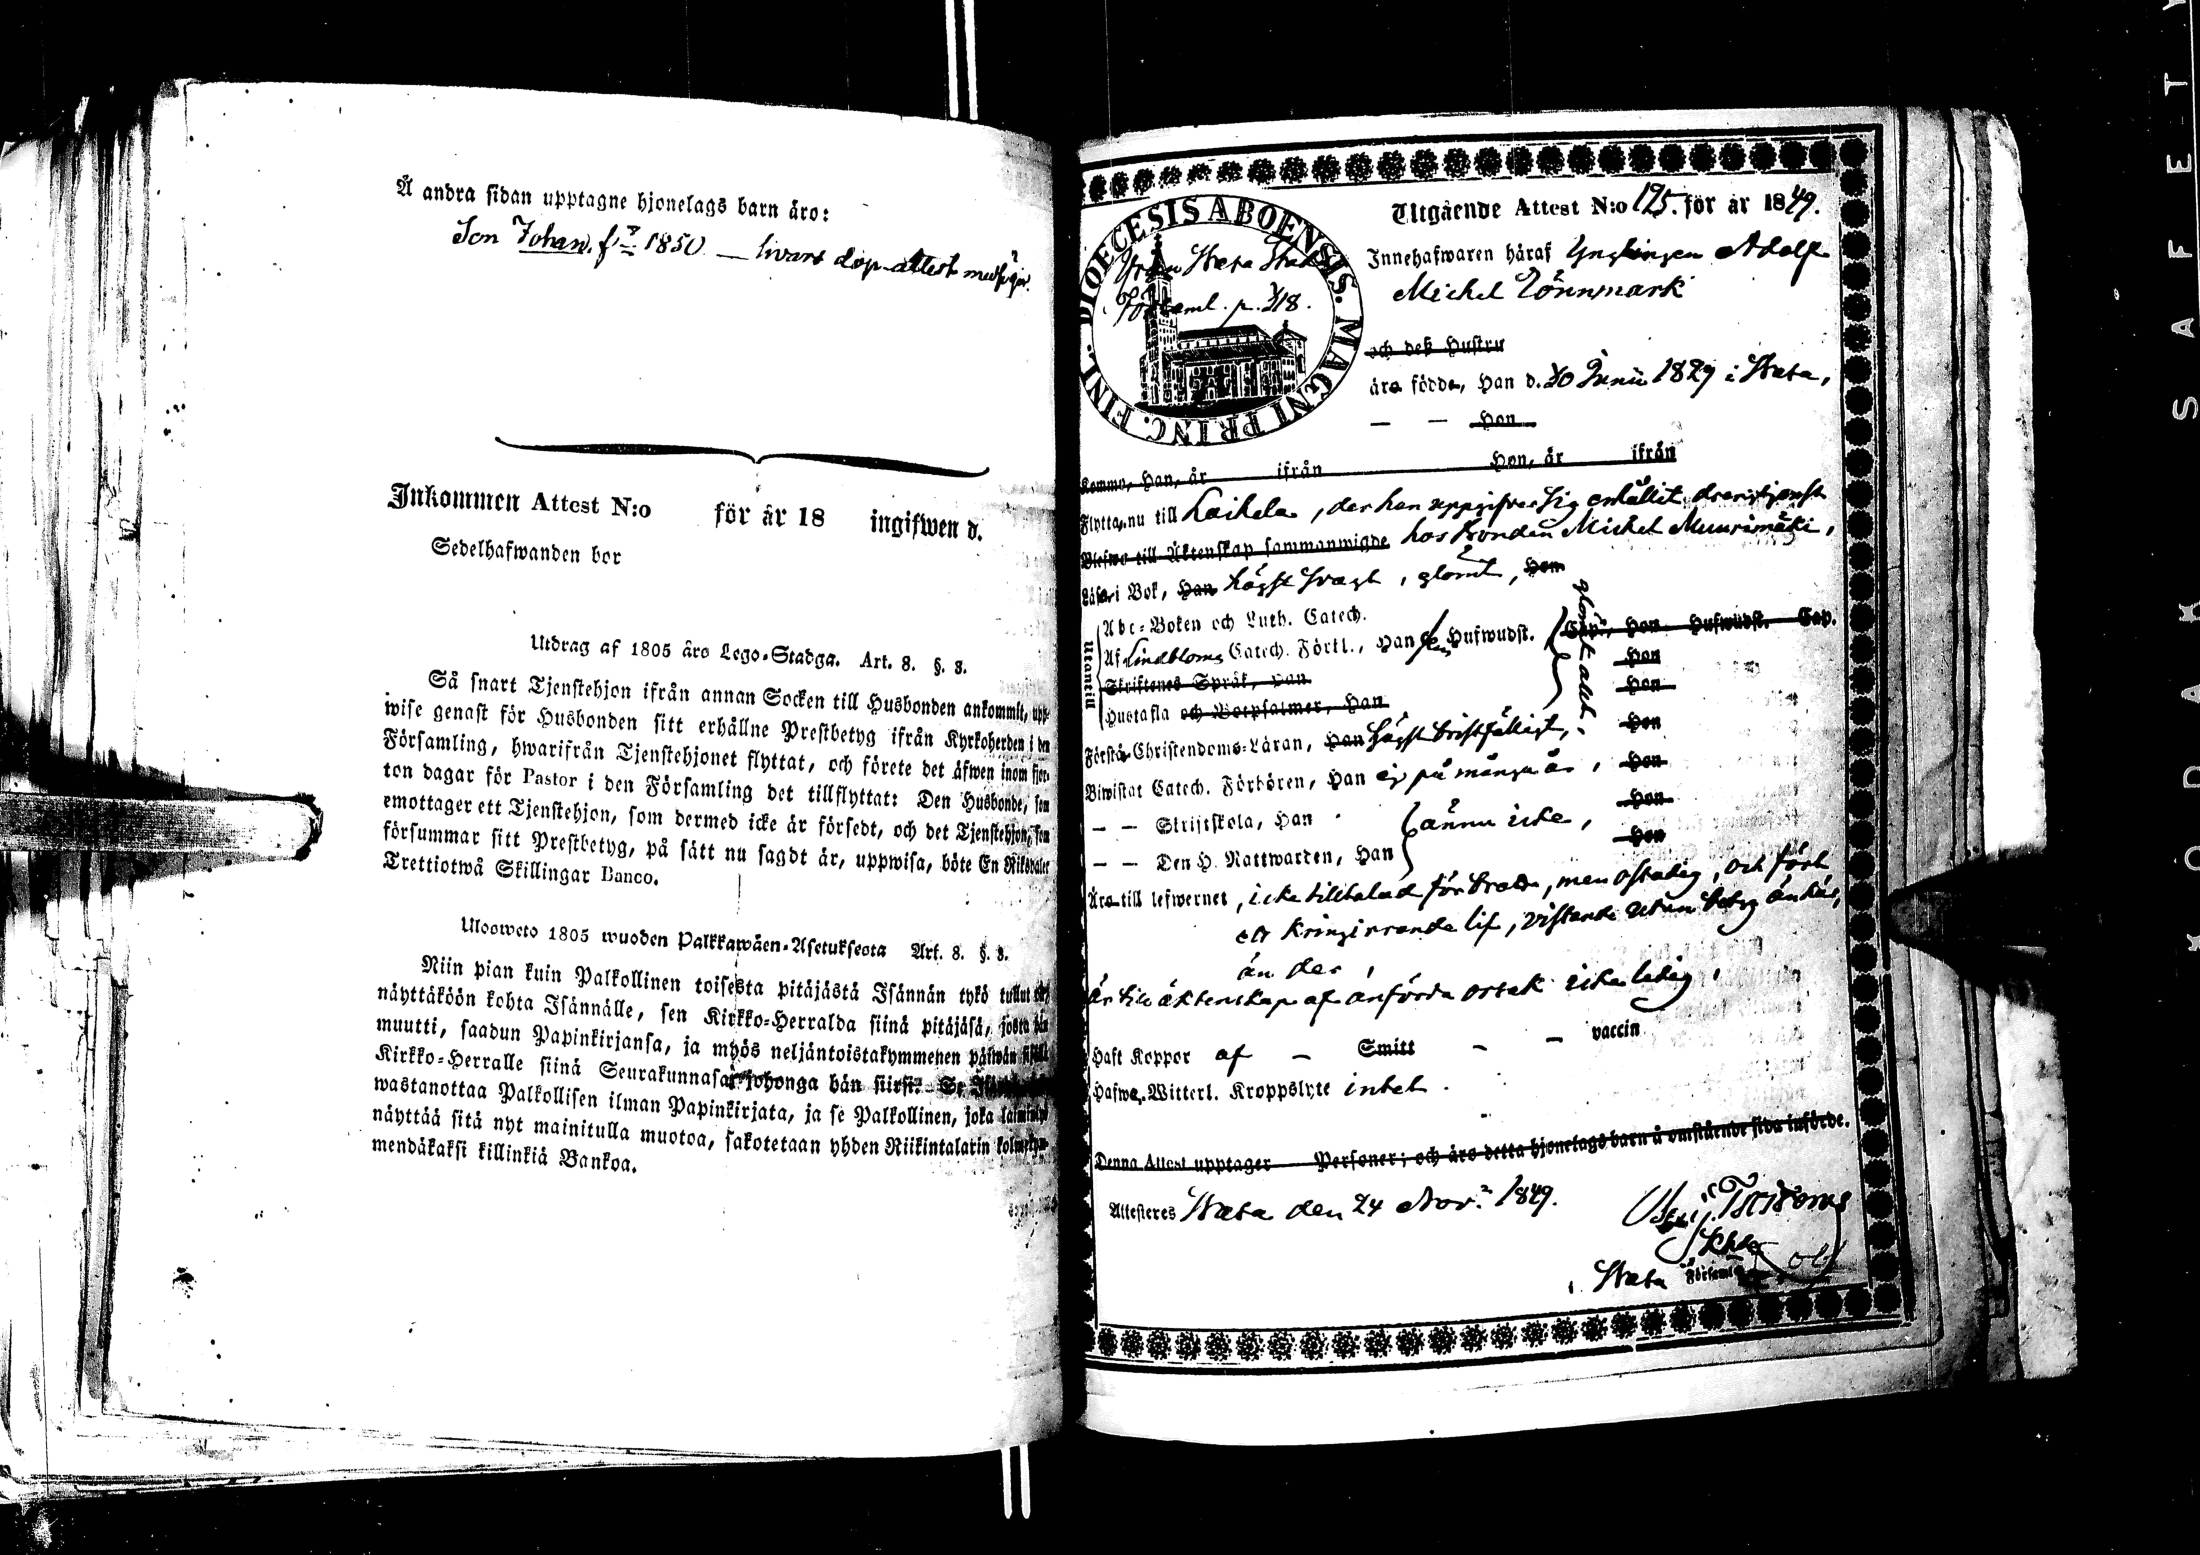 Å andra sidan upptagne hjonelags barn äro:
Son Johan. f. 1850 — hvars dop-attest medföljer.
Inkommen Attest N:o för år 18 ingifwen d.
Sedelhafwanden bor
Utdrag af 1805 års Lego-Stadga. Art. 8. §. 3.
Så snart Tjenstehjon ifrån annan Socken till Husbonden ankommit, upp-
wise genast för Husbonden sitt erhållne Prestbetyg ifrån Kyrkoherden i den
Församling, hwarifrån Tjenstehjonet flyttat, och förete det äfwen inom fjor-
ton dagar för Pastor i den Församling det tillflyttat: Den Husbonde, som
emottager ett Tjenstehjon, som dermed icke är försedt, och det Tjenstehjon, som
försummar sitt Prestbetyg, på sätt nu sagdt är, uppwisa, böte En Riksdaler
Trettiotwå Skillingar Banco.
Uloswето 1805 wuoden Palkkawäen-Asetuksesta Art. 8. §. 3.
Niin pian kuin Palkollinen toisesta pitäjästä Isännän tykö tullut
näyttäköön kohta Isännälle, sen Kirkko-Herralda siinä pitäjäsä, josta hän
muutti, saadun Papinkirjansa, ja myös neljäntoistakymmenen päiwän
Kirkko-Herralle siinä Seurakunnasa, johonga hän siirsi: Se
wastanottaa Palkollisen ilman Papinkirjata, ja se Palkollinen, joka
näyttää sitä nyt mainitulla muotoa, sakotetaan yhden Riikintalarin kolmekym-
mendäkaksi killinkiä Bankoa.
DIOECESIS ABOENSIS. MAGNI PRINC. FINL.
från Wasa Stads
Församl. p. 318.
Utgående Attest N:o 195. för år 1849.
Innehafwaren häraf Ynglingen Adolf
Michel Lönnmark
och deß Hustru
äro födde, Han d. 30 Junii 1829 i Wasa,
— — Hon
Kommo, Han, år ifrån Hon, år ifrån
Flytta nu till Laihela, der han uppgifver sig erhållit drängtjenst
Blefwo till Äktenskap sammanwigde hos Bonden Michel Muurimäki,
Läsa i Bok, Han högst svagt, glömt, Hon
Utantill
Abc-Boken och Luth. Catech.
Af Lindbloms Catech. Förkl., Han Hufwudst. Cap., Hon Hufwudst. Cap.
glömt allt
Skriftenes Språk, Han Hon
Hustafla och Botpsalmer, Han Hon
Förstå Christendoms-Läran, Han högst bristfälligt, Hon
Biwistat Catech. Förhören, Han ej på många år, Hon
— — Skriftskola, Han ännu icke, Hon
— — Den H. Nattwarden, Han Hon
Äro till lefwernet, icke tilltalad för brott, men ostadig, och fört
ett kringirrande lif, vistande utan betyg än här,
än der,
är till äktenskap af anförda orsak icke ledig,
Haft Koppor af — Smitt — — vaccin
Hafwa Witterl. Kroppslyte intet.
Denna Attest upptager Personer; och äro detta hjonelags barn å omstående sida införde.
Attesteres Wasa den 24 Nov. 1849.
i Wasa Församl.
SAFETY
KODAK